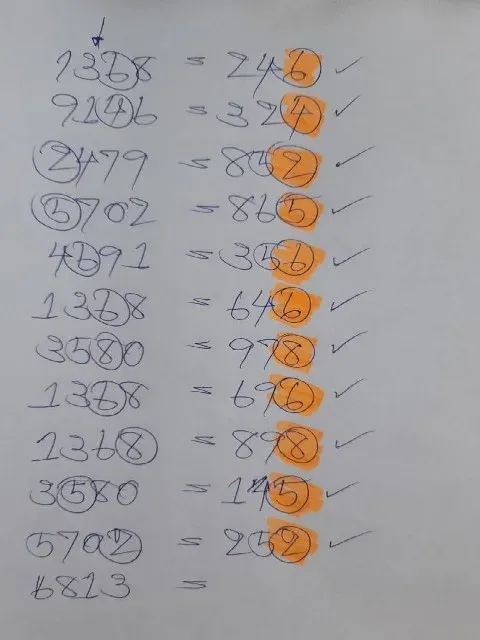 1368 = 246
9146 = 324
2479 = 852
5702 = 865
4691 = 356
1368 = 646
3580 = 978
1368 = 696
1368 = 898
3580 = 145
5702 = 252
6813 =